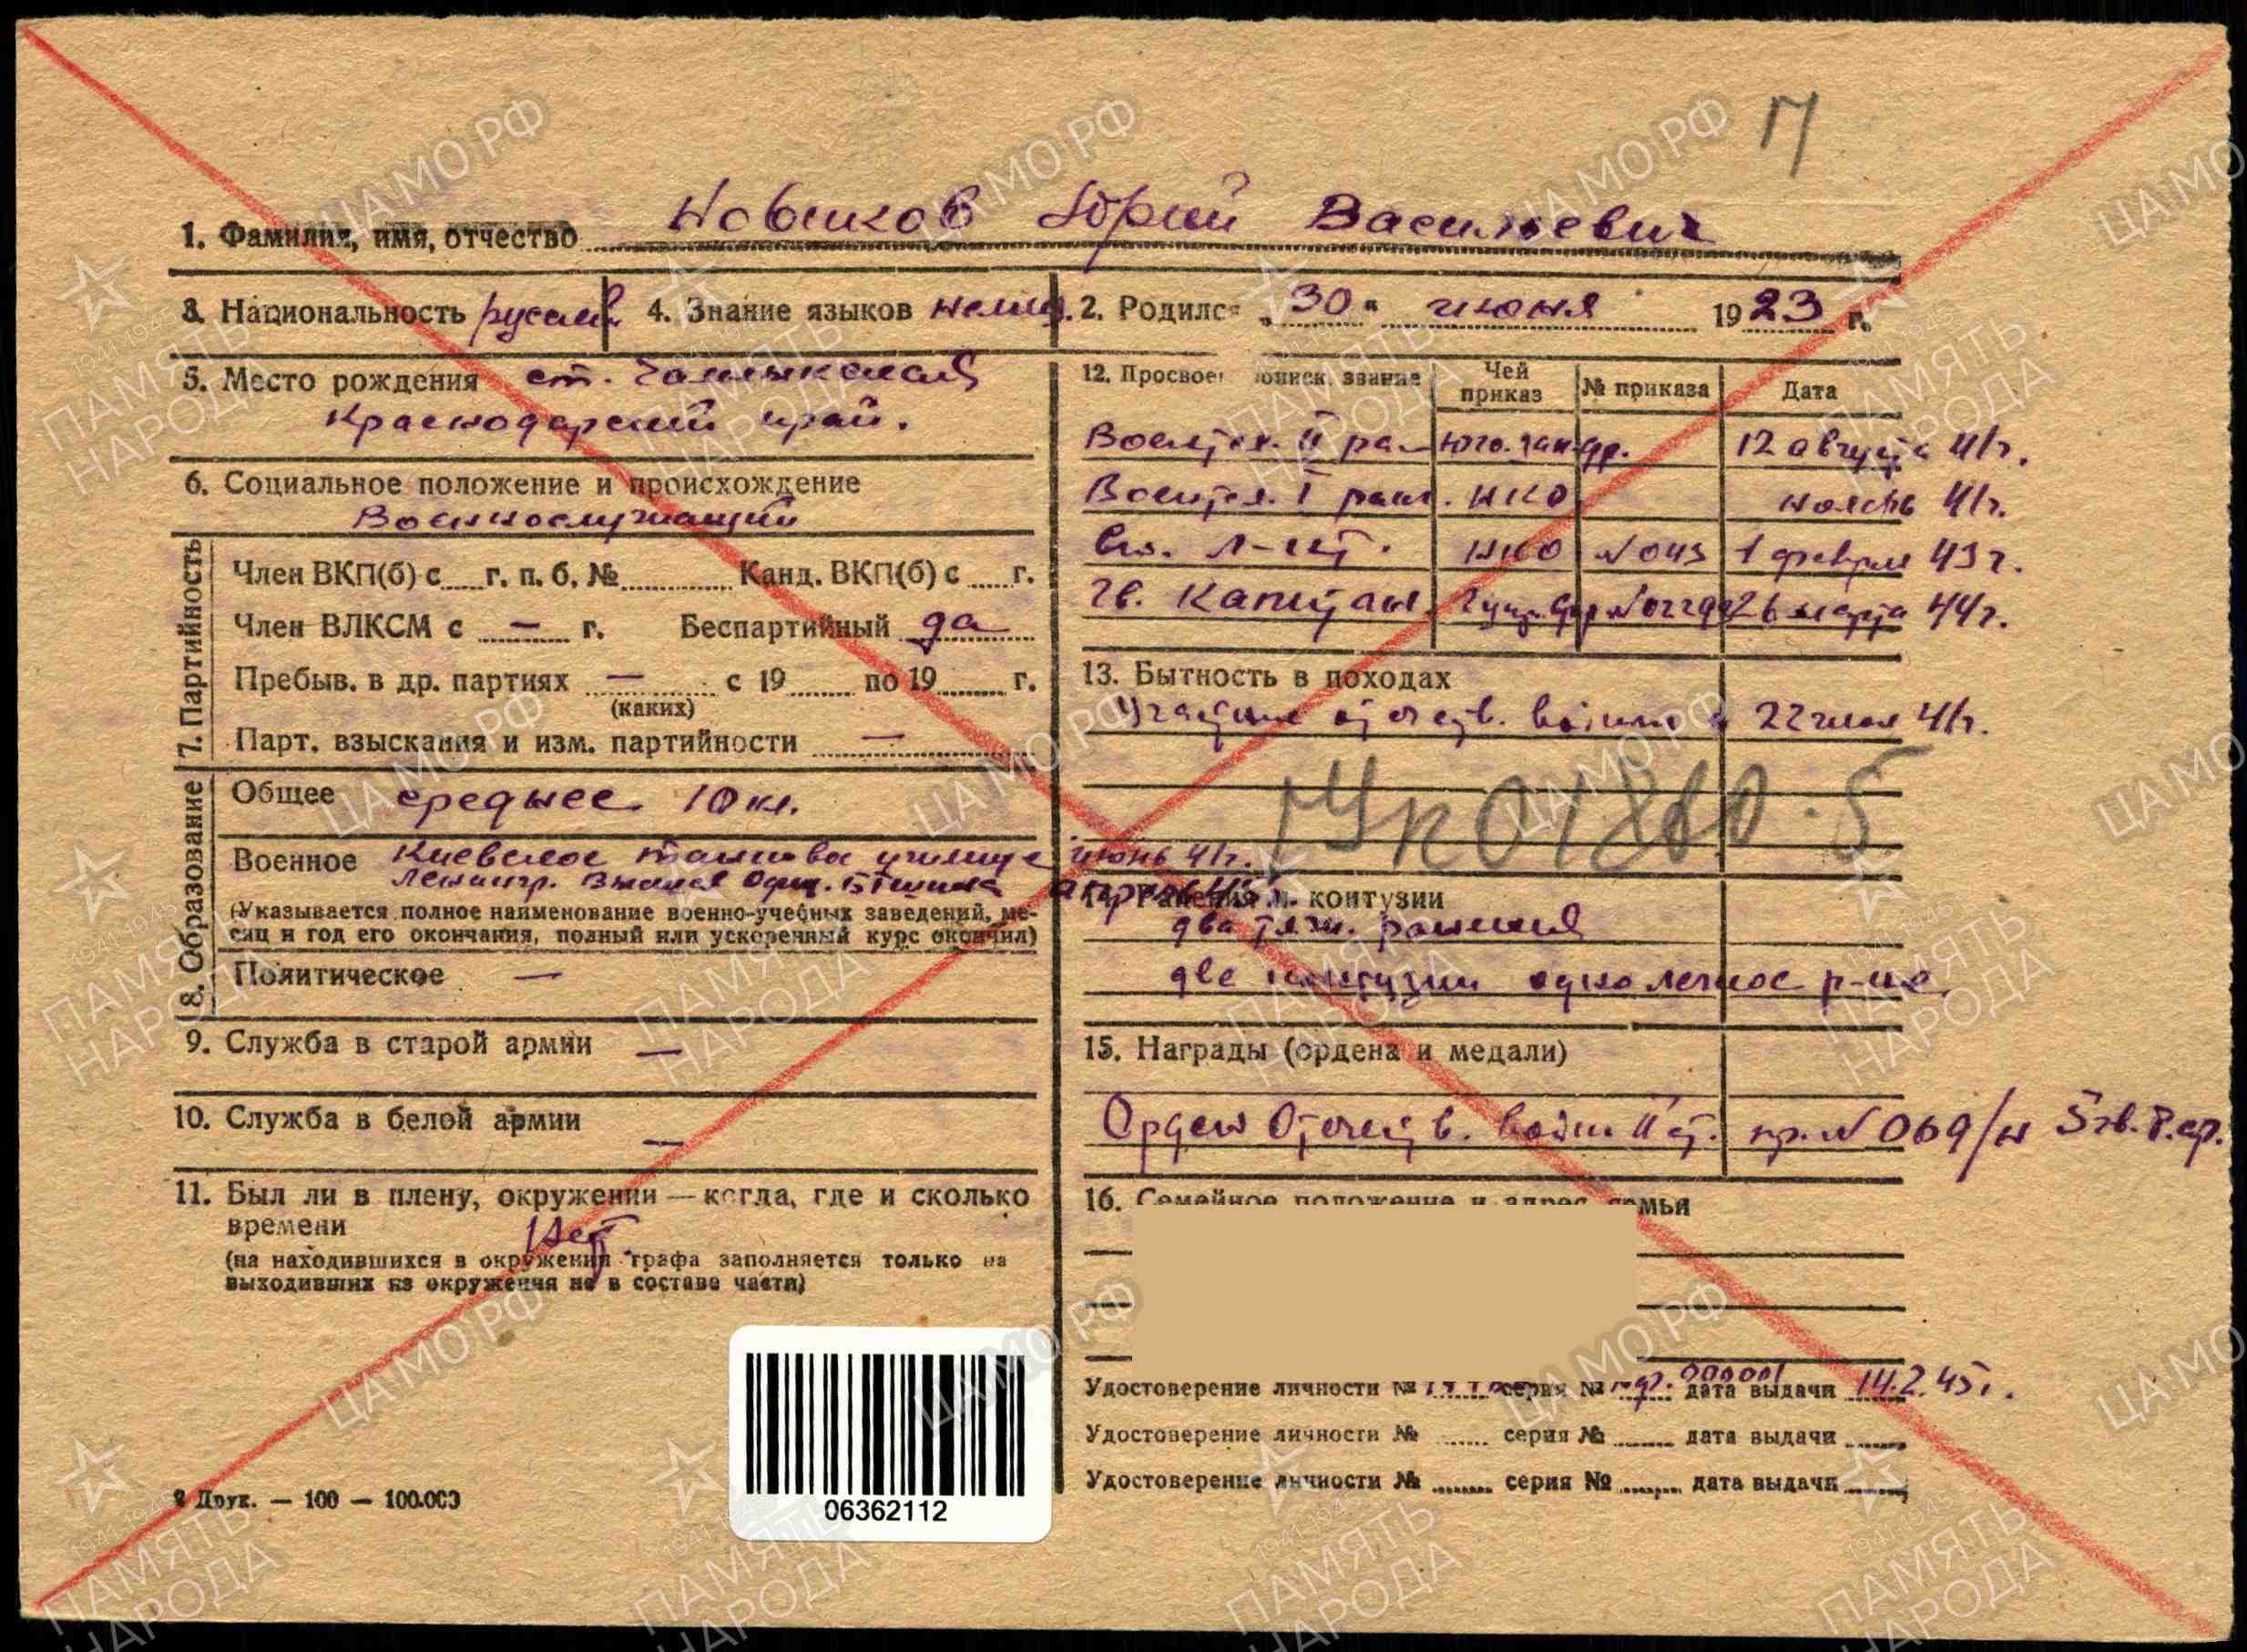 П
1. Фамилия, имя, отчество Новиков Юрий Васильевич
3. Национальность русский 4. Знание языков немец. 2. Родился „30“ июня 1923 г.
5. Место рождения ст. Чамлыкская
Краснодарский край.
6. Социальное положение и происхождение
Военнослужащий
7. Партийность
Член ВКП(б) с г. п. б. № Канд. ВКП(б) с г.
Член ВЛКСМ с — г. Беспартийный да
Пребыв. в др. партиях — с 19 по 19 г.
(каких)
Парт. взыскания и изм. партийности —
8. Образование
Общее среднее 10 кл.
Военное Киевское танковое училище июнь 41г.
Ленингр. Высшая Офиц. апрель
(Указывается полное наименование военно-учебных заведений, ме-
сяц и год его окончания, полный или ускоренный курс окончил)
Политическое —
9. Служба в старой армии —
10. Служба в белой армии —
11. Был ли в плену, окружении — когда, где и сколько
времени Нет
(на находившихся в окружении графа заполняется только на
выходивших из окружения не в составе части)
9 Друк. — 100 — 100.000
06362112
12. Просвоен воинск. звание Чей приказ № приказа Дата
Воентех. II ранг Юго. зап. фр. 12 августа 41г.
Воентех. I ранг. НКО ноябрь 41г.
Ст. л-нт. НКО N 043 1 февраля 43г.
Гв. Капитан 2 укр. фр N 0229 26 марта 44г.
13. Бытность в походах
Участник отечеств. войны с 22 июня 41г.
14. Ранения и контузии
два тяж. ранения
две контузии одно легкое р-ие
15. Награды (ордена и медали)
Орден Отечеств. войны II ст. пр. N 069/н 5 гв.
16. Семейное положение и адрес семьи
Удостоверение личности № серия № дата выдачи 14.2.45г.
Удостоверение личности № серия № дата выдачи
Удостоверение личности № серия № дата выдачи
ЦАМО.РФ
ПАМЯТЬ
НАРОДА
1941-1945